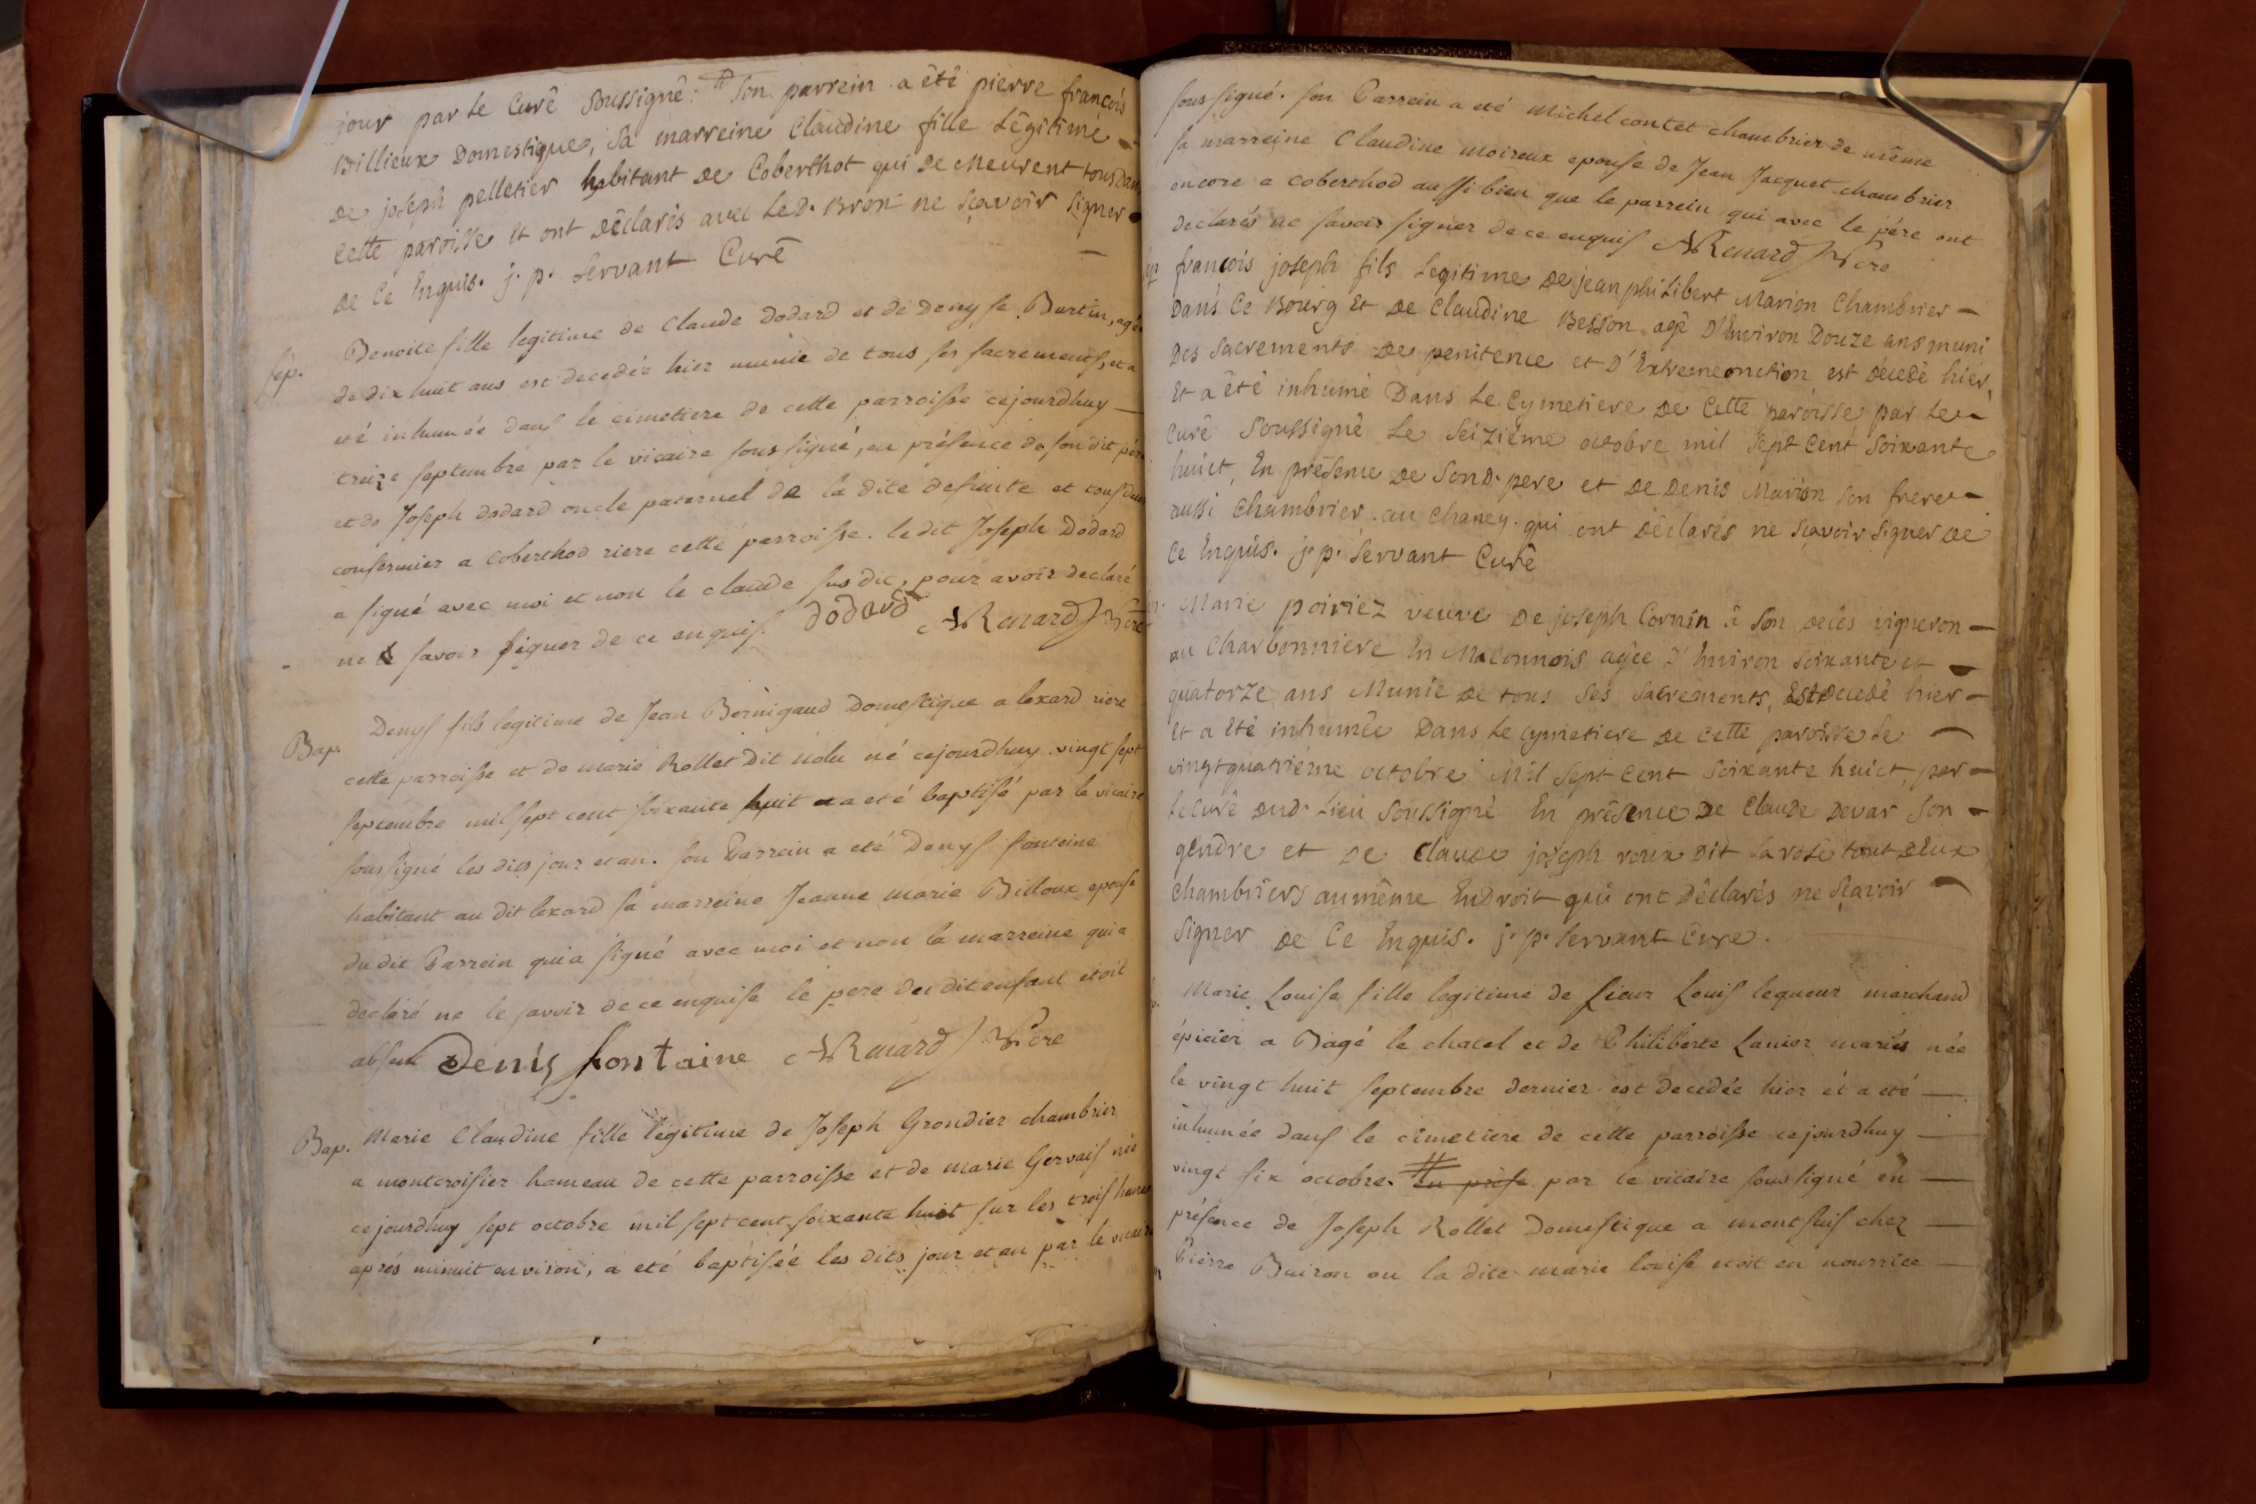 jour par le Curé Soussigné. Son parrein a été pierre francois
Billieux Domestique, Sa marreine Claudine fille Légitime
de joseph pelletier habitant de Coberthot qui demeurent tous dans
cette paroisse et ont déclarés avec led. Bron ne sçavoir signer
de ce Enquis. j. p. Servant Curé
Sep.
Benoite fille legitime de Claude Dodard et de Denyse Burtin, agée
de dix huit ans est decedée hier munie de tous ses sacrements, et a
été inhumée dans le cimetiere de cette parroisse cejourdhuy
treize septembre par le vicaire soussigné, en présence de son dit pére
et de Joseph dodard oncle paternel de la dite defunte et tous deux
confermier a Coberthod riere cette parroisse. le dit Joseph Dodard
a signé avec moi et non le claude susdit, pour avoir declaré
ne savoir signer de ce enquis. Dodard Renard Vicre
Bap.
Denys fils legitime de Jean Bernigaud Domestique a lexard riere
cette parroisse et de marie Rollet dit né cejourdhuy vingt sept
septembre mil sept cent soixante huit a eté baptisé par le vicaire
soussigné les dits jour et an. son Parrein a eté Denys fontaine
habitant au dit lexard sa marreine Jeanne Marie Billoux epouse
dudit Parrein qui a signé avec moi et non la marreine qui a
declaré ne le savoir de ce enquise le pere du dit enfant etoit
absent Denis fontaine Renard Vicre
Bap.
Marie Claudine fille légitime de Joseph Grondier chambrier
a montcroissier hameau de cette parroisse et de marie Gervais née
cejourdhuy sept octobre mil sept cent soixante huit sur les trois heures
aprés minuit environ, a eté baptisée les dits jour et an par le vicaire
soussigné. son Parrein a eté Michel contet chambrier de même
sa marreine Claudine moireux epouse de Jean Jacquet chambrier
encore a coberthod aussi bien que le parrein qui avec le pére ont
declarés ne savoir signer de ce enquis Renard Vicre
francois joseph fils Legitime de jean philibert Marion Chambrier
Dans Ce Bourg et de Claudine Besson agé D'Environ Douze ans muni
Des Sacrements de penitence et D'Extremeonction est décedé hier,
et a été inhumé Dans Le Cymetiere de Cette paroisse par Le
Curé Soussigné Le Seiziéme octobre mil Sept Cent Soixante
huict, En présence de Sond. pere et de Denis Marion son frere
aussi Chambrier au Chaney qui ont déclarés ne sçavoir signer de
Ce Enquis. j. p. Servant Curé
Marie poiriez veuve De joseph Cornin à Son decès vigneron
au Charbonniere En Maconnois agée d'Environ Soixante et
quatorze ans Munie de tous Ses Sacrements, Est decedé hier
et a été inhumée Dans Le Cymetiere de Cette paroisse Le
vingtquatriéme octobre Mil Sept Cent Soixante huict, par
Le Curé dud. Lieu Soussigné En présence de Claude Devar Son
gendre et de Claude joseph roux dit la rose tout deux
Chambriers au même Endroit qui ont déclarés ne sçavoir
signer de Ce Enquis. j. p. Servant Curé.
Marie Louise fille legitime de sieur Louis lequeur marchand
épicier a Bâgé le chatel et de Philiberte Lanier mariés née
le vingt huit septembre dernier est decedée hier et a eté
inhumée dans le cimetiere de cette parroisse cejourdhuy
vingt six octobre. En prése par le vicaire soussigné en
présence de Joseph Rollet Domestique a montsuif chez
Pierre Buiron ou la dite marie louise etoit en nourrice